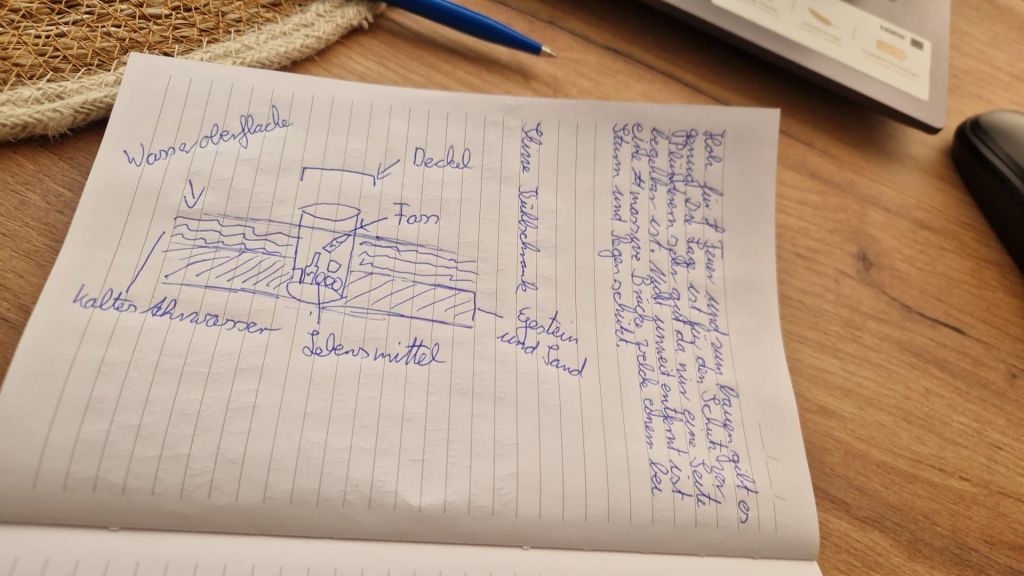 Holz für's Feuer und zum bauen gibt es
genug. Der Lag ist für den Schutz vor
Plünderern sehr gut da nur eine Seite
begehbar ist. Nicht entfernt ist
eine Brücke welche einem bei
Sturm und Regen schützt
Kühlschrank
Wasseroberfläche
Deckel
Fass
Kaltes Ahrwasser
Lebensmittel
und Sand